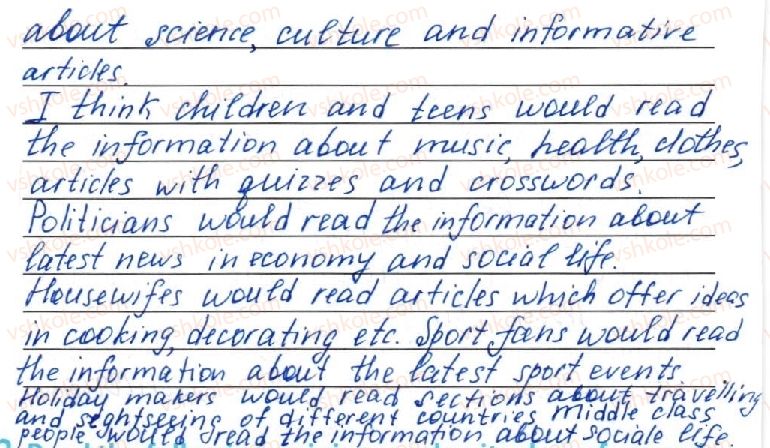 about science, culture and informative
articles.
I think children and teens would read
the information about music, health, clothes,
articles with quizzes and crosswords.
Politicians would read the information about
latest news in economy and social life.
Housewifes would read articles which offer ideas
in cooking, decorating etc. Sport fans would read
the information about the latest sport events
Holiday makers would read sections about travelling
and seghtseeing of different countries middle class
people would read the information about sociale life.